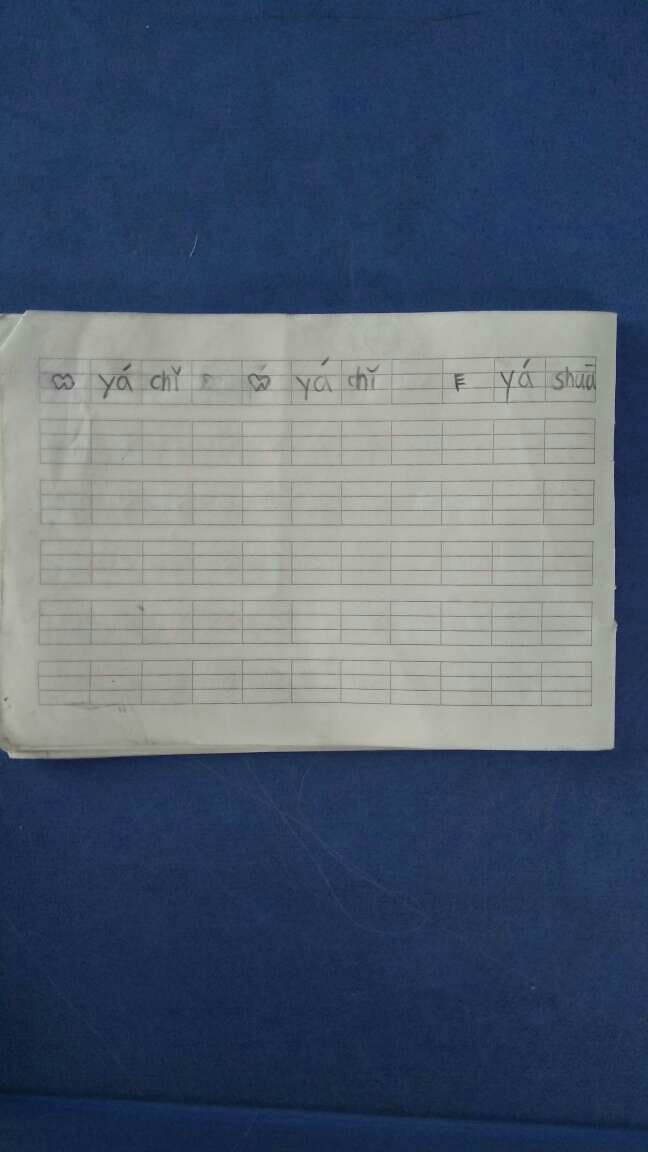 yá chǐ yá chǐ yá shuā